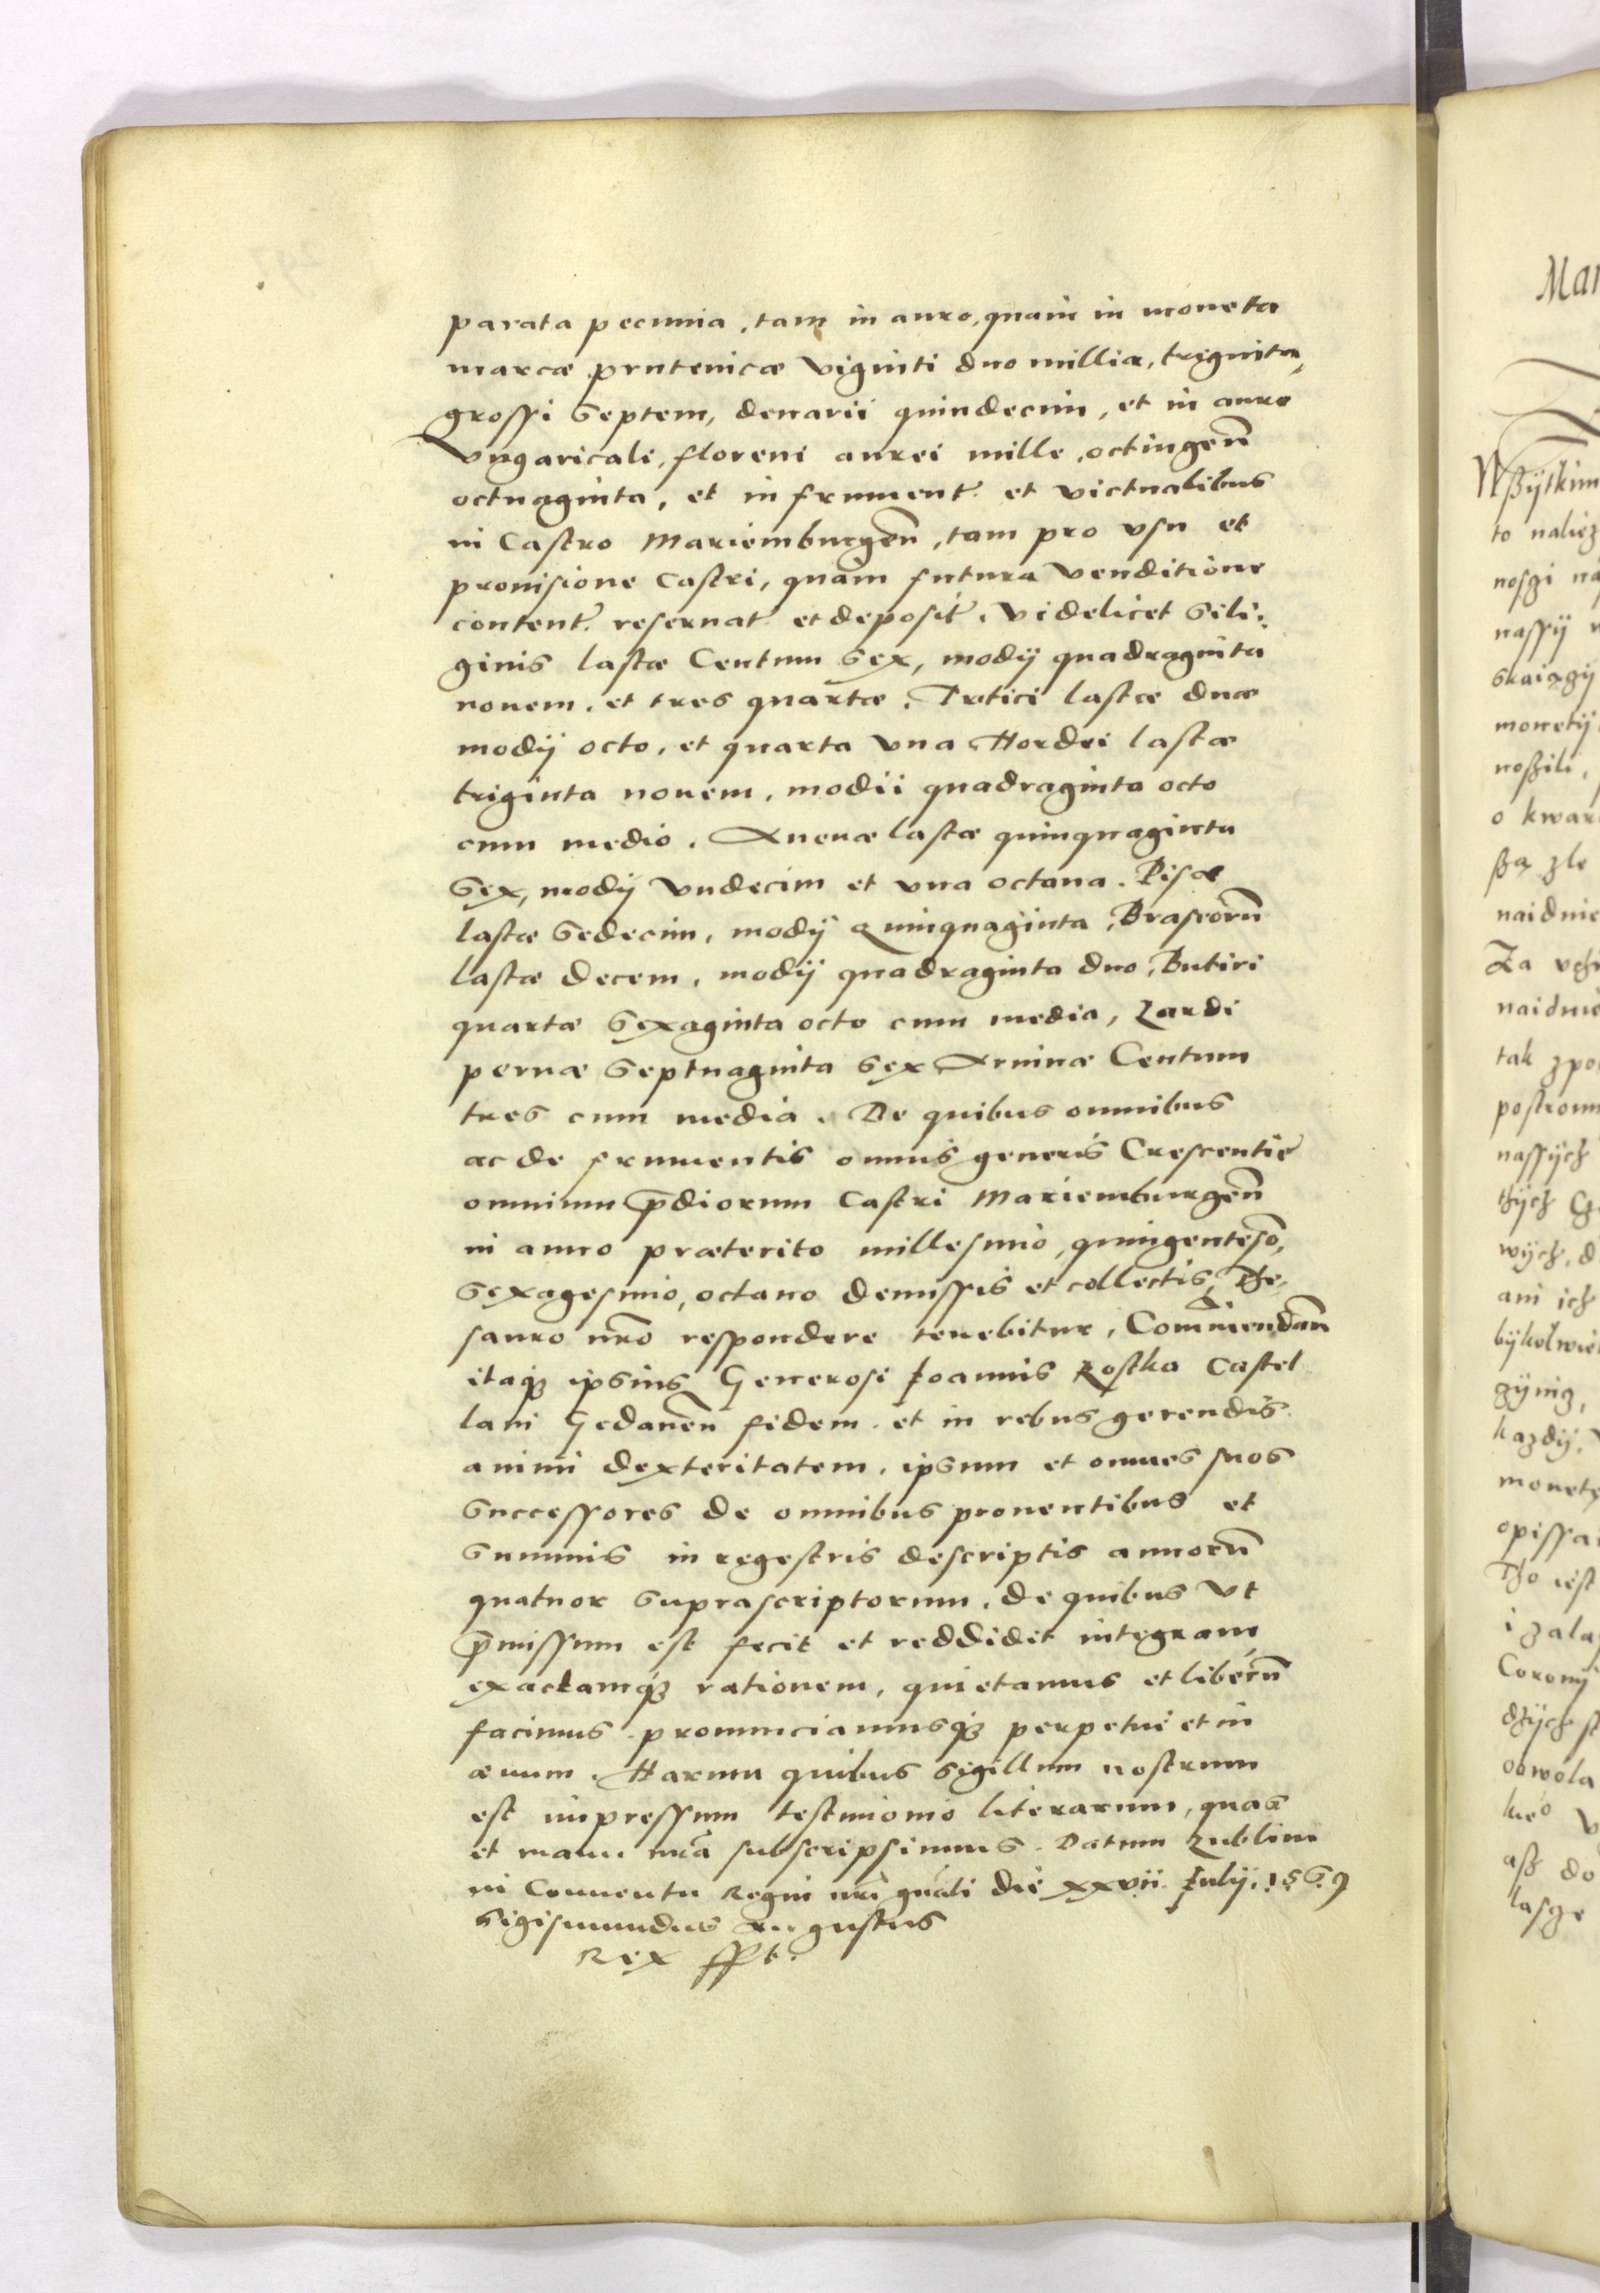 parata pecunia, tam in auro, quam in moneta
marcæ prutenicæ viginti duo millia, triginta,
grossi septem, denarii quindecim, et in auro
Vngaricali, floreni aurei mille, octingen̄
octuaginta, et in frument. et victualibus
in Castro Mariemburgen̄, tam pro vsu et
prouisione Castri, quam futura venditione
content. reseruat. et deposit. Videlicet sili⸗
ginis lastæ Centum sex, modij quadraginta
nouem, et tres quartæ. Tritici lastæ duæ
modij octo, et quarta vna Hordei lastæ
triginta nouem, modii quadraginta octo
cum medio. Auenæ lastæ quinquaginta
sex, modij vndecim et vna octaua. Pisæ
lastæ sedecim, modij quinquaginta, Braseorū
lastæ decem, modij quadraginta duo, Butiri
quartæ sexaginta octo cum media, Lardi
pernæ septuaginta sex Aruinæ Centum
tres cum media. De quibus omnibus
ac de frumentis omnis generis Crescentie
omnium p̄diorum Castri Mariemburgen̄
in anno præterito millesimo, quingentesō,
sexagesimo, octauo demissis et collectis, The⸗
sauro nr̄o respondere tenebitur. Commendan̄
itaq₃ ipsius Generosi Joannis Kostka Castel
lani Gedanen̄ fidem et in rebus gerendis
animi dexteritatem, ipsum et omnes suos
successores de omnibus prouentibus et
summis in regestris descriptis annorū
quatuor suprascriptorum, de quibus vt
p̄missum est fecit et reddidit integram
exactamq₃ rationem, quietamus et liberū
facimus pronunciamusq₃ perpetue et in
æuum. Harum quibus sigillum nostrum
est impressum testimonio literarum, quas
et manu nr̄a subscripsimus. Datum Lublini
in Conuentu Regni nr̄i gn̄ali die xxvii Julij. 1569
Sigismundus Augustus
Rex sspt.